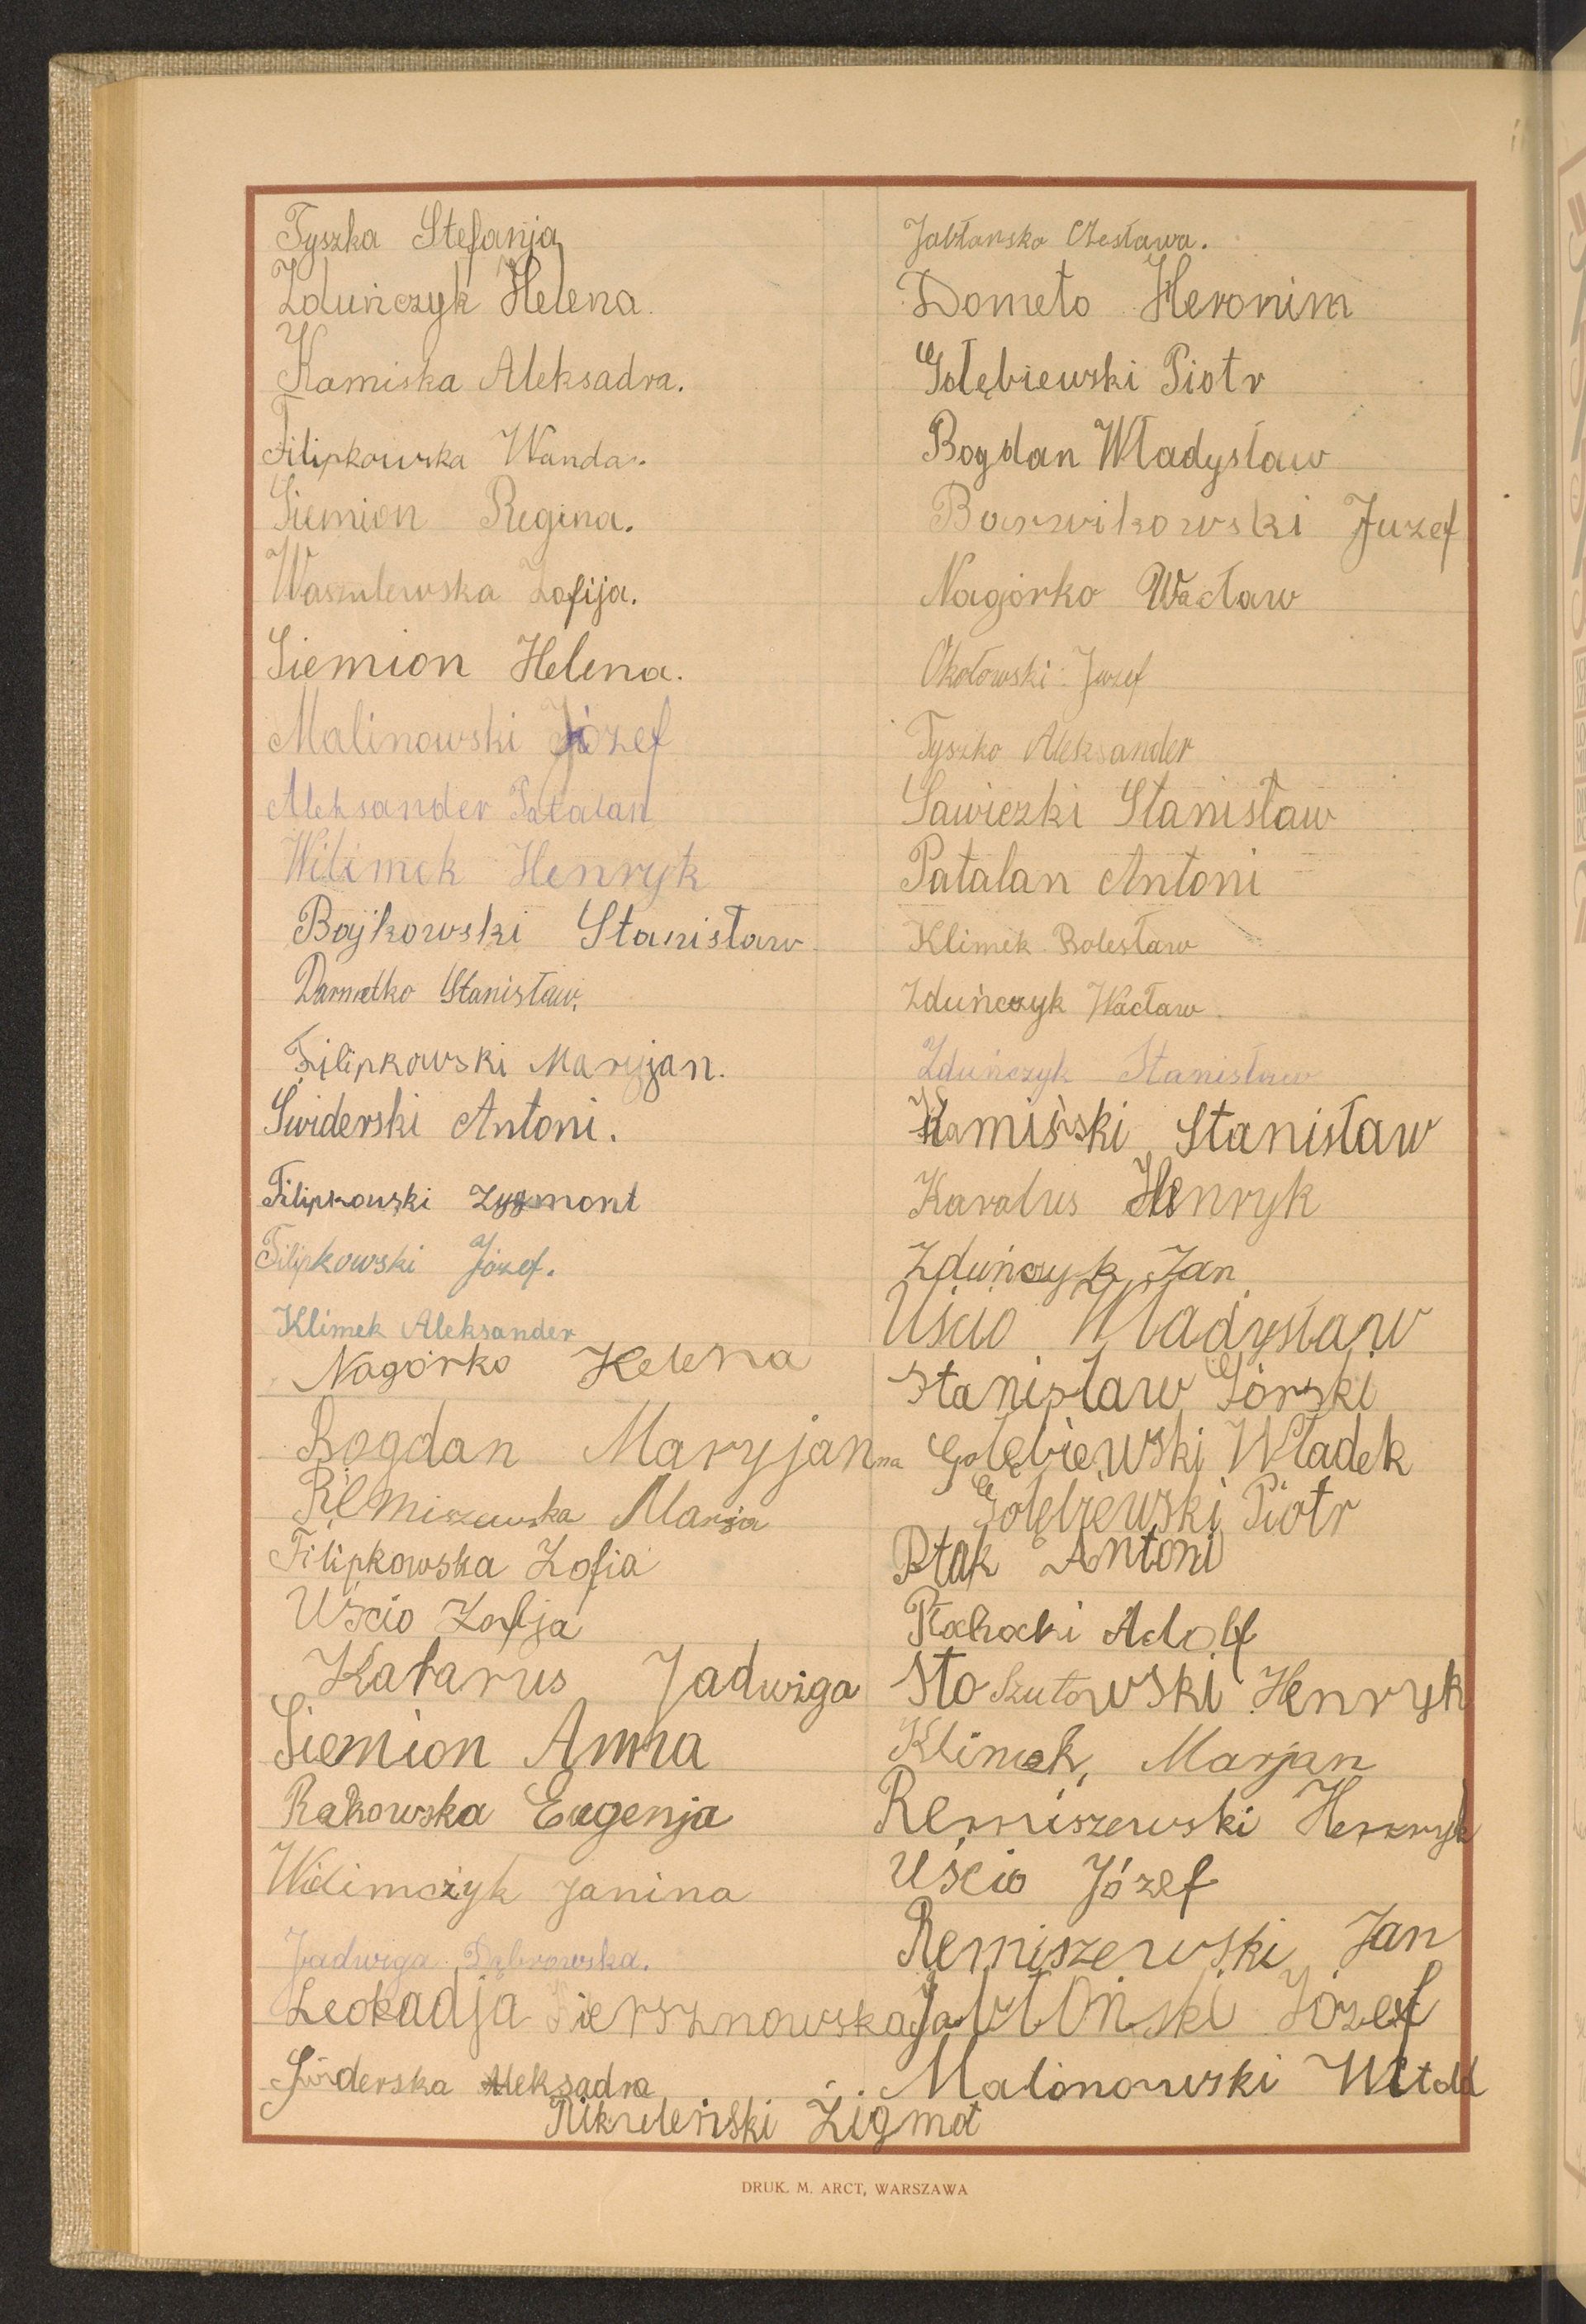 Tyszka Stefanja
Zduńczyk Helena.
Kamiska Aleksadra.
Filipkowska Wanda.
Siemion Regina.
Zofija.
Siemion Helena.
Malinowski Józef
Aleksander Patalan
Wilimek Henryk
Bojkowski Stanisław
Darmetko Stanisław.
Filipkowski Maryjan.
Świderski Antoni.
Filipkowski Zygmont
Filipkowski Józef.
Klimek Aleksander
Nagórko Helena
Bogdan Maryjanna
Remiszewska Marja
Filipkowska Zofia
Uścio Zofja
Katarus Jadwiga
Siemion Anna
Rakowska Eugenja
Wilimczyk Janina
Jadwiga Dąbrowska.
Leokadja
Świderska Aleksadra
Jabłańska Czesława.
Dometo Heronim
Gołębiewski Piotr
Bogdan Władysław
Barwikowski Juzef
Nagórko Wacław
Okołowski Juzef
Tyszko Aleksander
Sawiczki Stanisław
Patalan Antoni
Klimek Bolesław
Zduńczyk Wacław.
Zduńczyk Stanisław
Kamiński Stanisław
Karalus Henryk
Zduńczyk Jan
Uścio Władysław
Stanisław Górski
Gołębiewski Władek
Gołębiewski Piotr
Ptak Antoni
Płochocki Adolf
Henryk
Klimek, Marjan
Remiszewski Henryk
Uścio Józef
Remiszewski Jan
Jabłoński Józef
Malinowski Witold
Zigmot
DRUK. M. ARCT, WARSZAWA